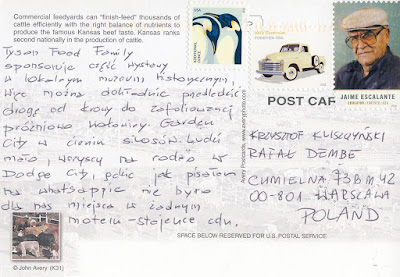 Commercial feedyards can "finish-feed" thousands of
cattle efficiently with the right balance of nutrients to
produce the famous Kansas beef taste. Kansas ranks
second nationally in the production of cattle.
Tyson Food Family
sponsoruje część wystawy
w lokalnym muzeum historycznym,
więc można dokładnie prześledzić
drogę od krowy do zafoliowanej
próżniowo wołowiny. Garden
City w cieniu silosów. Ludzi
mało, wszyscy na rodeo w
Dodge City, gdzie jak pisałam
na whatsappie nie było
dla nas miejsca w żadnym
motelu-stajence
© John Avery (K31)
Avery Postcards, www.averyphoto.com
USA
FOREVER USA
JAIME ESCALANTE
POST CAR
KRZYSZTOF
RAFAŁ DEMBE
CHMIELNA 73B M 42
00-801 WARSZAWA
POLAND
SPACE BELOW RESERVED FOR U.S. POSTAL SERVICE